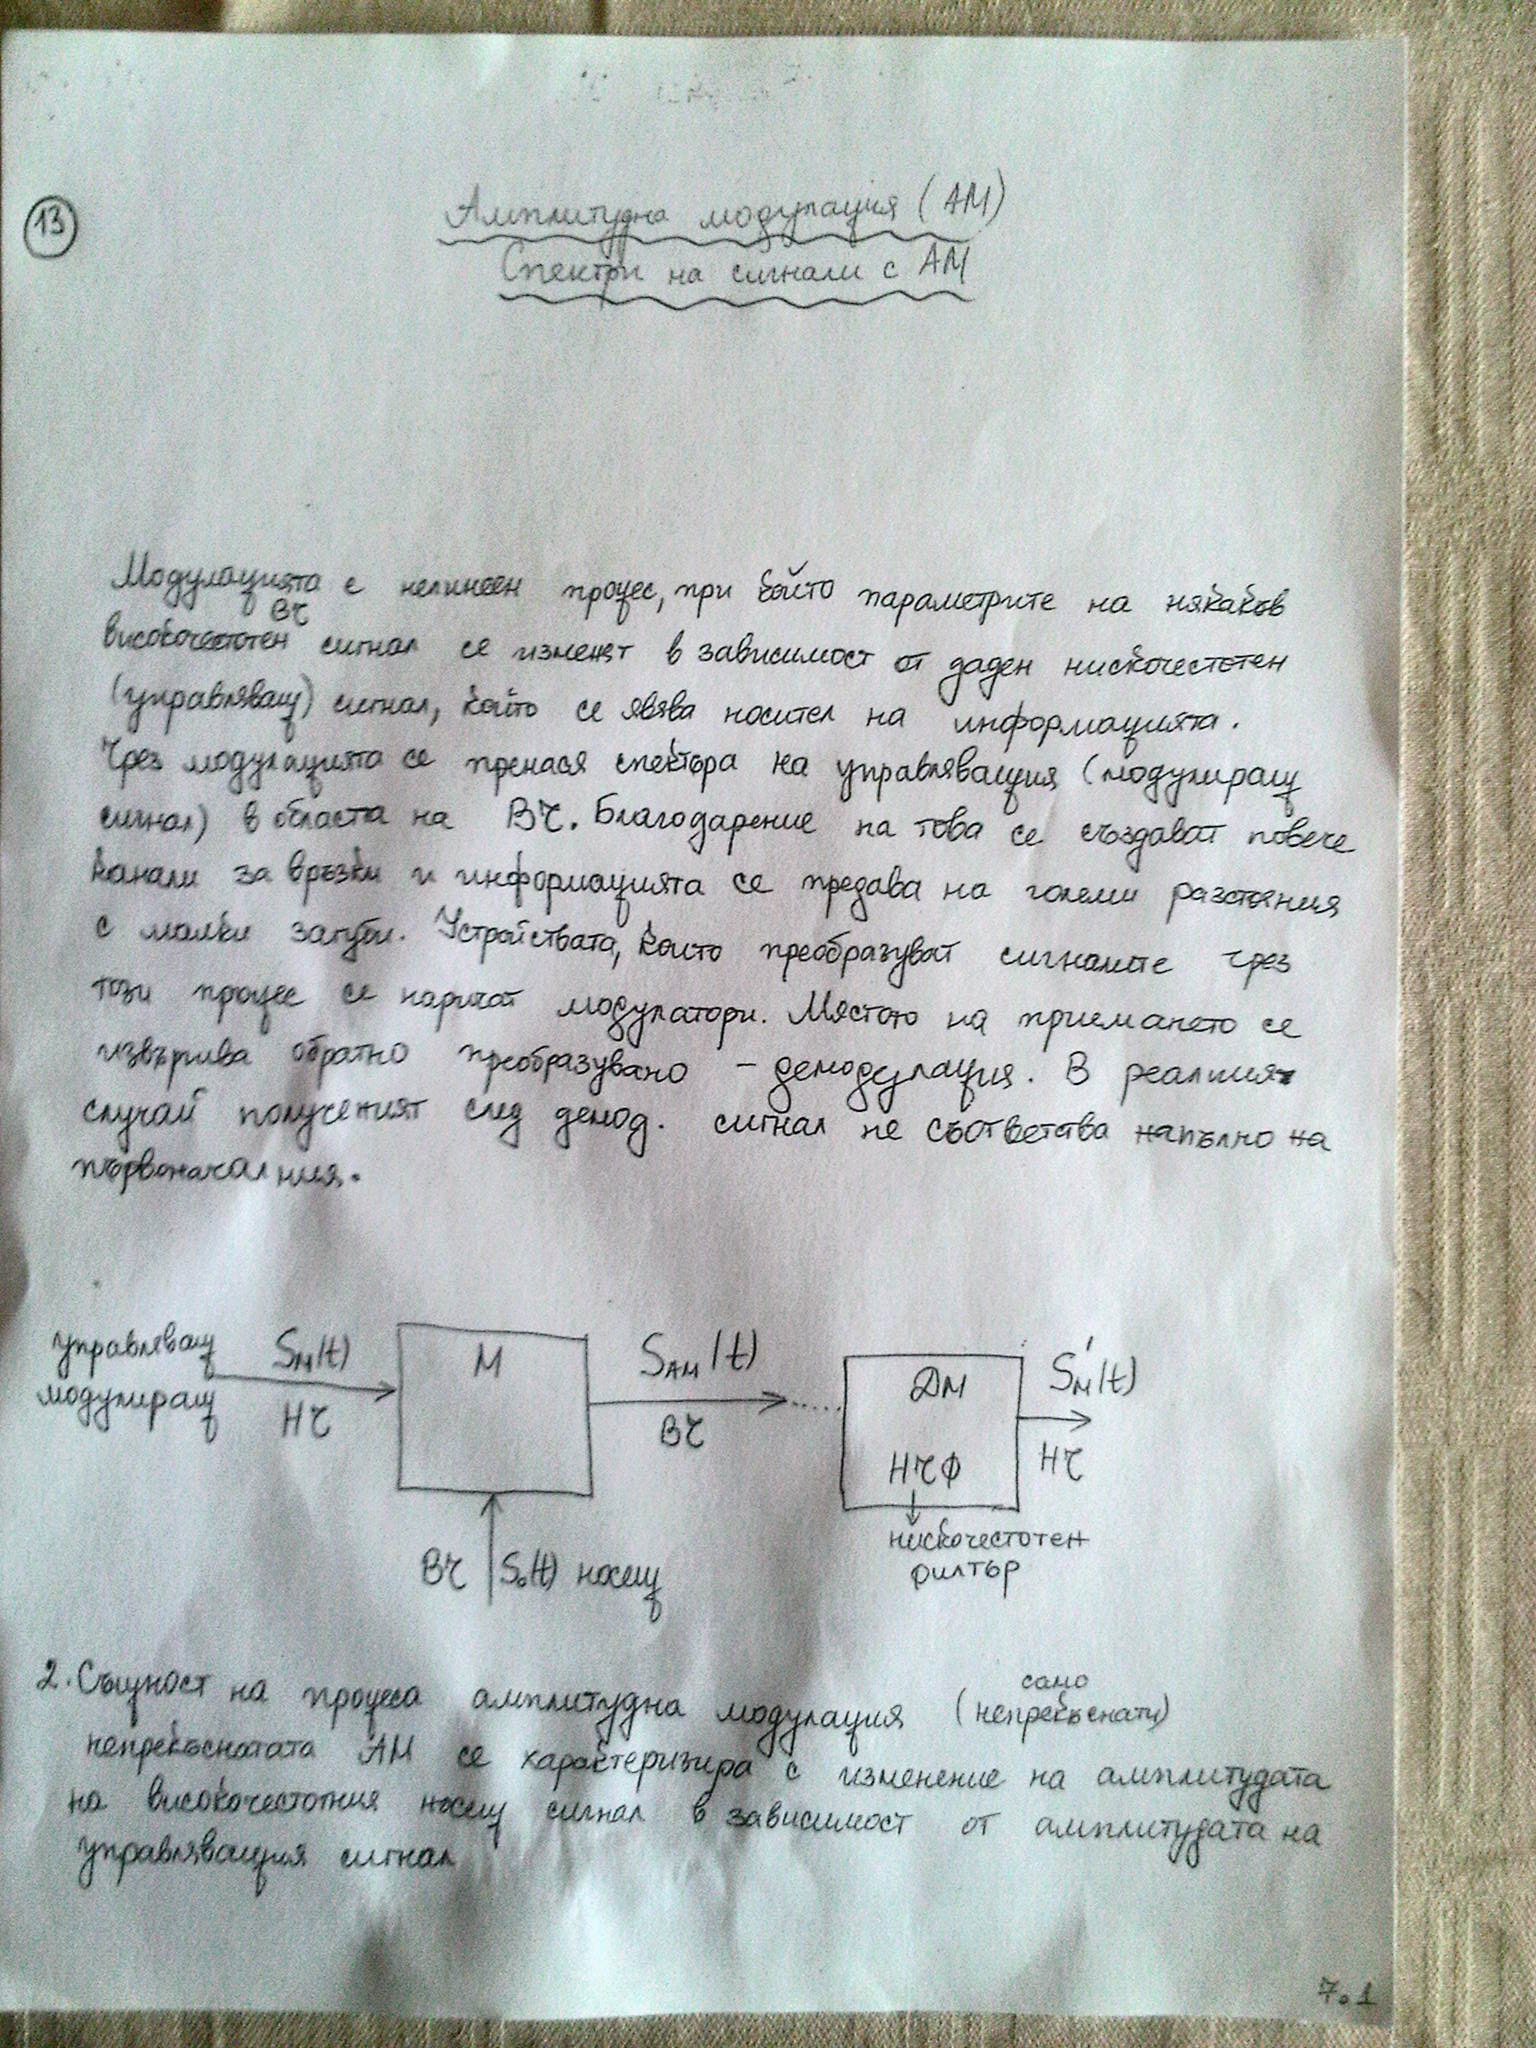 13
Амплитудна модулация (АМ)
Спектри на сигнали с АМ
Модулацията е нелинеен процес, при който параметрите на някакъв
ВЧ
високочестотен сигнал се изменят в зависимост от даден нискочестотен
(управляващ) сигнал, който се явява носител на информацията.
Чрез модулацията се пренася спектъра на управляващия (модулиращ
сигнал) в областа на ВЧ. Благодарение на това се създават повече
канали за връзки и информацията се предава на големи разстояния
с малки загуби. Устройствата, които преобразуват сигналите чрез
този процес се наричат модулатори. Мястото на приемането се
извършва обратно преобразувано – демодулация. В реалния
случай полученият след демод. сигнал не съответства напълно на
първоначалния.
управляващ
модулиращ
Sм(t)
НЧ
М
Sам(t)
ВЧ
ДМ
НЧФ
S'м(t)
НЧ
нискочестотен
филтър
ВЧ S₀(t) носещ
2. Същност на процеса амплитудна модулация (непрекъснати)
само
непрекъснатата АМ се характеризира с изменение на амплитудата
на високочестотния носещ сигнал в зависимост от амплитудата на
управляващия сигнал
7.1